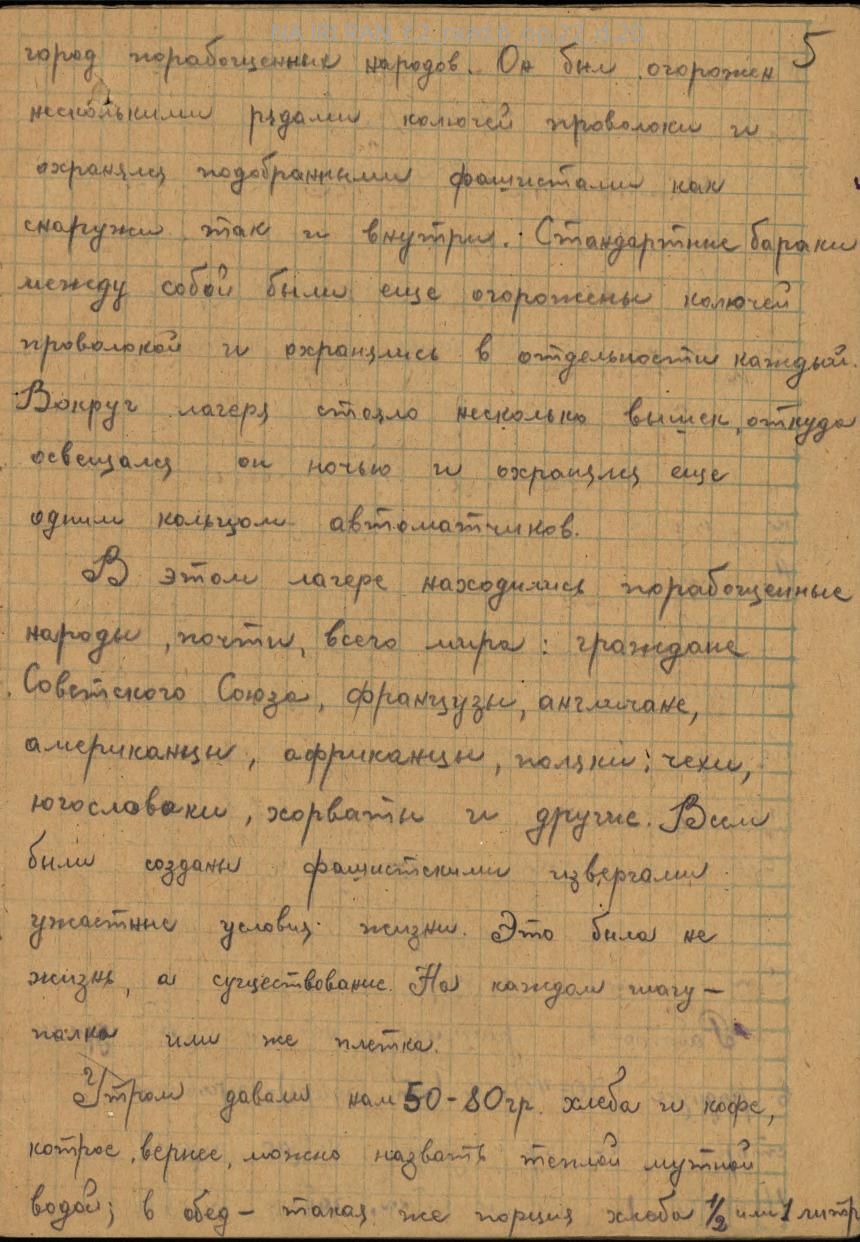 5
город порабощенных народов. Он был огорожен
несколькими рядами колючей проволоки и
охранялся подобранными фашистами как
снаружи так и внутри. Стандартные бараки
между собой были еще огорожены колючей
проволокой и охранялись в отдельности каждый.
Вокруг лагеря стояло несколько вышек, откуда
освещался он ночью и охранялся еще
одним кольцом автоматчиков.
В этом лагере находились порабощенные
народы, почти, всего мира: граждане
Советского Союза, французы, англичане,
американцы, африканцы, поляки; чехи,
югославаки, хорваты и другие. Всем
были созданы фашистскими извергами
ужастные условия жизни. Это была не
жизнь, а существование. На каждом шагу –
палка или же плетка.
Утром давали нам 50-80гр. хлеба и кофе,
котрое, вернее, можно назвать теплой мутной
водой; в обед – такая же порция хлеба 1/2 или 1 литр